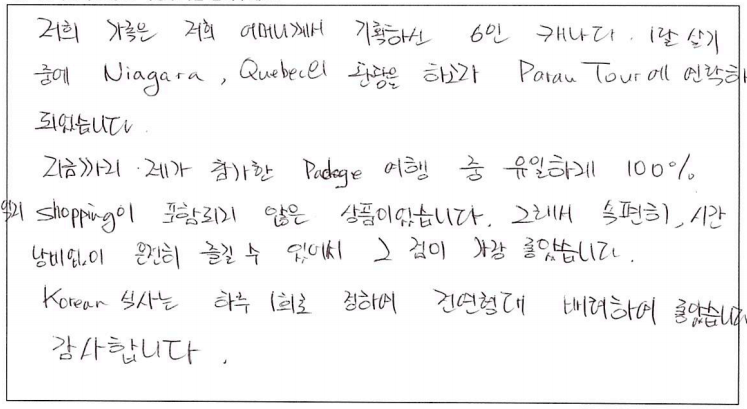 저희 가족은 저희 어머니께서 기획하신 6인 캐나다 1달 살기
중에 Niagara, Quebec의 관광을 하고자 Parau Tour에 연락하
되었습니다.
지금까지 제가 참가한 Package 여행 중 유일하게 100%
shopping이 포함되지 않은 상품이었습니다. 그래서 속편히, 시간
낭비없이 온전히 즐길 수 있어서 그 점이 가장 좋았습니다.
Korean 식사는 하루 1회로 정하여 전연령대 배려하여 좋았습니다
감사합니다.